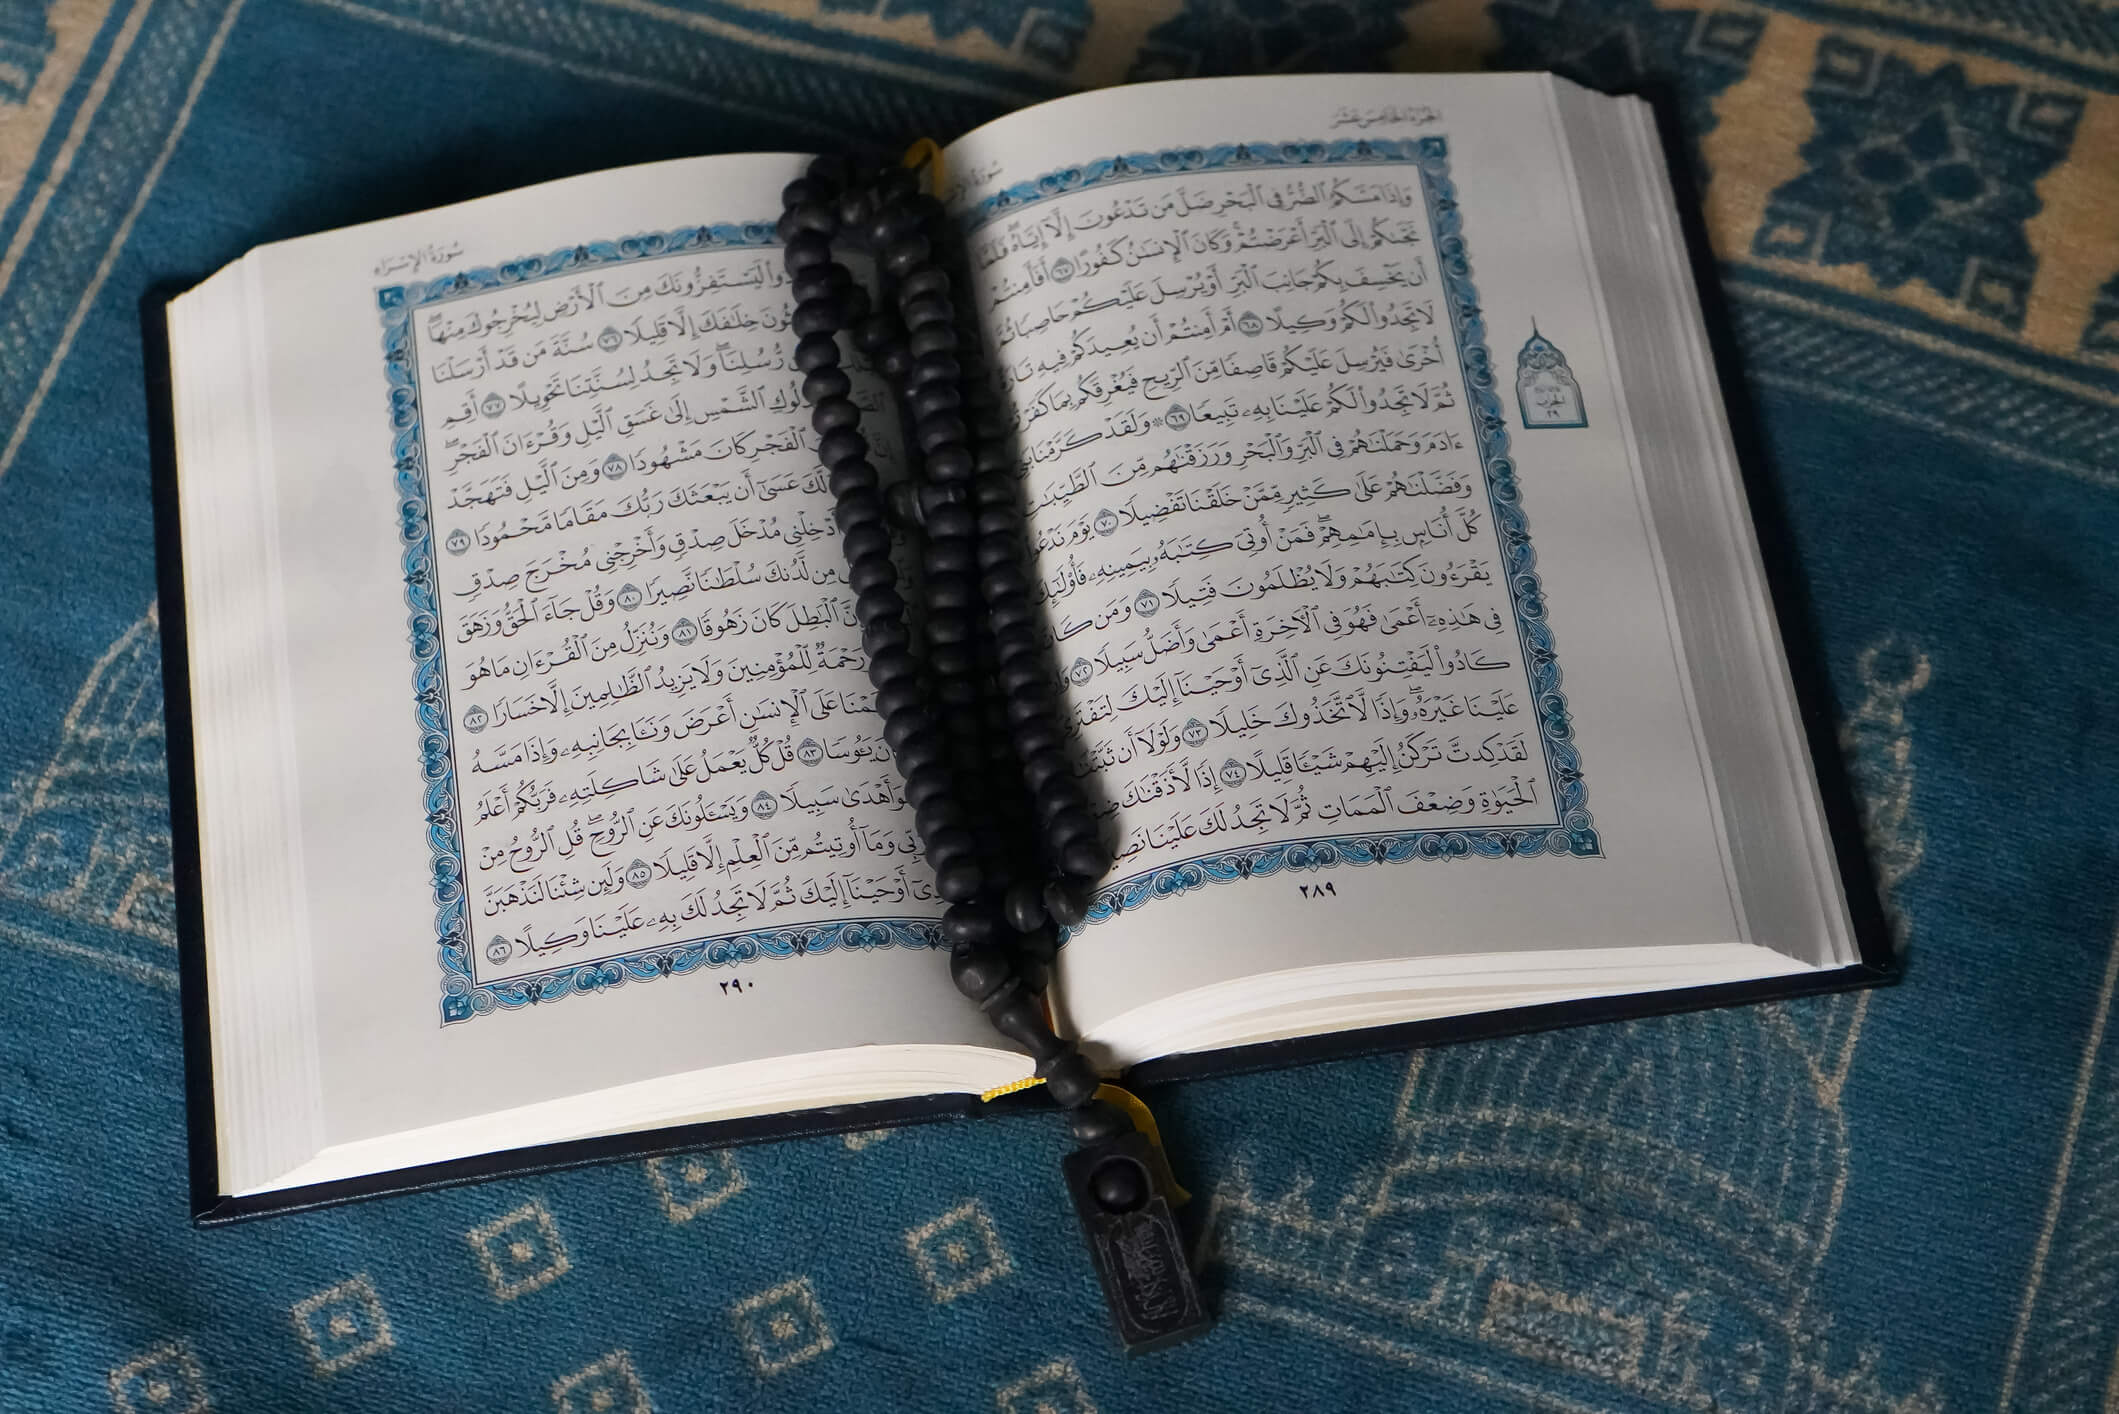 الجُزْءُ الخَامِسَ عَشَرَ
سُورَةُ
وَإِذَا مَسَّكُمُ ٱلضُّرُّ فِى ٱلْبَحْرِ ضَلَّ مَن تَدْعُونَ إِلَّآ إِيَّاهُۖ فَلَمَّا
نَجَّىٰكُمْ إِلَى ٱلْبَرِّ أَعْرَضْتُمْۚ وَكَانَ ٱلْإِنسَٰنُ كَفُورًا ٦٧ أَفَأَمِنتُمْ
أَن يَخْسِفَ بِكُمْ جَانِبَ ٱلْبَرِّ أَوْ يُرْسِلَ عَلَيْكُمْ حَاصِبًا ثُمَّ
لَا تَجِدُوا۟ لَكُمْ وَكِيلًا ٦٨ أَمْ أَمِنتُمْ أَن يُعِيدَكُمْ فِيهِ تَارَةً
أُخْرَىٰ فَيُرْسِلَ عَلَيْكُمْ قَاصِفًا مِّنَ ٱلرِّيحِ فَيُغْرِقَكُم بِمَا كَفَرْتُمْ
ثُمَّ لَا تَجِدُوا۟ لَكُمْ عَلَيْنَا بِهِۦ تَبِيعًا ٦٩ ۞ وَلَقَدْ كَرَّمْنَا بَنِىٓ
ءَادَمَ وَحَمَلْنَٰهُمْ فِى ٱلْبَرِّ وَٱلْبَحْرِ وَرَزَقْنَٰهُم مِّنَ ٱلطَّيِّبَٰتِ
وَفَضَّلْنَٰهُمْ عَلَىٰ كَثِيرٍ مِّمَّنْ خَلَقْنَا تَفْضِيلًا ٧٠ يَوْمَ نَدْعُوا۟
كُلَّ أُنَاسٍۭ بِإِمَٰمِهِمْۖ فَمَنْ أُوتِىَ كِتَٰبَهُۥ بِيَمِينِهِۦ فَأُو۟لَٰٓئِكَ
يَقْرَءُونَ كِتَٰبَهُمْ وَلَا يُظْلَمُونَ فَتِيلًا ٧١ وَمَن كَانَ
فِى هَٰذِهِۦٓ أَعْمَىٰ فَهُوَ فِى ٱلْءَاخِرَةِ أَعْمَىٰ وَأَضَلُّ سَبِيلًا ٧٢
كَادُوا۟ لَيَفْتِنُونَكَ عَنِ ٱلَّذِىٓ أَوْحَيْنَآ إِلَيْكَ لِتَفْتَرِىَ
عَلَيْنَا غَيْرَهُۥۖ وَإِذًا لَّٱتَّخَذُوكَ خَلِيلًا ٧٣ وَلَوْلَآ أَن ثَبَّتْنَٰكَ
لَقَدْ كِدتَّ تَرْكَنُ إِلَيْهِمْ شَيْـًٔا قَلِيلًا ٧٤ إِذًا لَّأَذَقْنَٰكَ
ٱلْحَيَوٰةِ وَضِعْفَ ٱلْمَمَاتِ ثُمَّ لَا تَجِدُ لَكَ عَلَيْنَا نَصِيرًا
٢٨٩
الحزب
٢٩
سُورَةُ الإِسْرَاءِ
لَيَسْتَفِزُّونَكَ مِنَ ٱلْأَرْضِ لِيُخْرِجُوكَ مِنْهَاۖ
خِلَٰفَكَ إِلَّا قَلِيلًا ٧٦ سُنَّةَ مَن قَدْ أَرْسَلْنَا
رُّسُلِنَاۖ وَلَا تَجِدُ لِسُنَّتِنَا تَحْوِيلًا ٧٧ أَقِمِ
لِدُلُوكِ ٱلشَّمْسِ إِلَىٰ غَسَقِ ٱلَّيْلِ وَقُرْءَانَ ٱلْفَجْرِۖ
ٱلْفَجْرِ كَانَ مَشْهُودًا ٧٨ وَمِنَ ٱلَّيْلِ فَتَهَجَّدْ
لَّكَ عَسَىٰٓ أَن يَبْعَثَكَ رَبُّكَ مَقَامًا مَّحْمُودًا ٧٩
أَدْخِلْنِى مُدْخَلَ صِدْقٍ وَأَخْرِجْنِى مُخْرَجَ صِدْقٍ
مِن لَّدُنكَ سُلْطَٰنًا نَّصِيرًا ٨٠ وَقُلْ جَآءَ ٱلْحَقُّ وَزَهَقَ
إِنَّ ٱلْبَٰطِلَ كَانَ زَهُوقًا ٨١ وَنُنَزِّلُ مِنَ ٱلْقُرْءَانِ مَا هُوَ
وَرَحْمَةٌ لِّلْمُؤْمِنِينَ وَلَا يَزِيدُ ٱلظَّٰلِمِينَ إِلَّا خَسَارًا ٨٢
أَنْعَمْنَا عَلَى ٱلْإِنسَٰنِ أَعْرَضَ وَنَـَٔا بِجَانِبِهِۦ وَإِذَا مَسَّهُ
كَانَ يَـُٔوسًا ٨٣ قُلْ كُلٌّ يَعْمَلُ عَلَىٰ شَاكِلَتِهِۦ فَرَبُّكُمْ أَعْلَمُ
أَهْدَىٰ سَبِيلًا ٨٤ وَيَسْـَٔلُونَكَ عَنِ ٱلرُّوحِۖ قُلِ ٱلرُّوحُ مِنْ
رَبِّى وَمَآ أُوتِيتُم مِّنَ ٱلْعِلْمِ إِلَّا قَلِيلًا ٨٥ وَلَئِن شِئْنَا لَنَذْهَبَنَّ
أَوْحَيْنَآ إِلَيْكَ ثُمَّ لَا تَجِدُ لَكَ بِهِۦ عَلَيْنَا وَكِيلًا ٨٦
٢٩٠